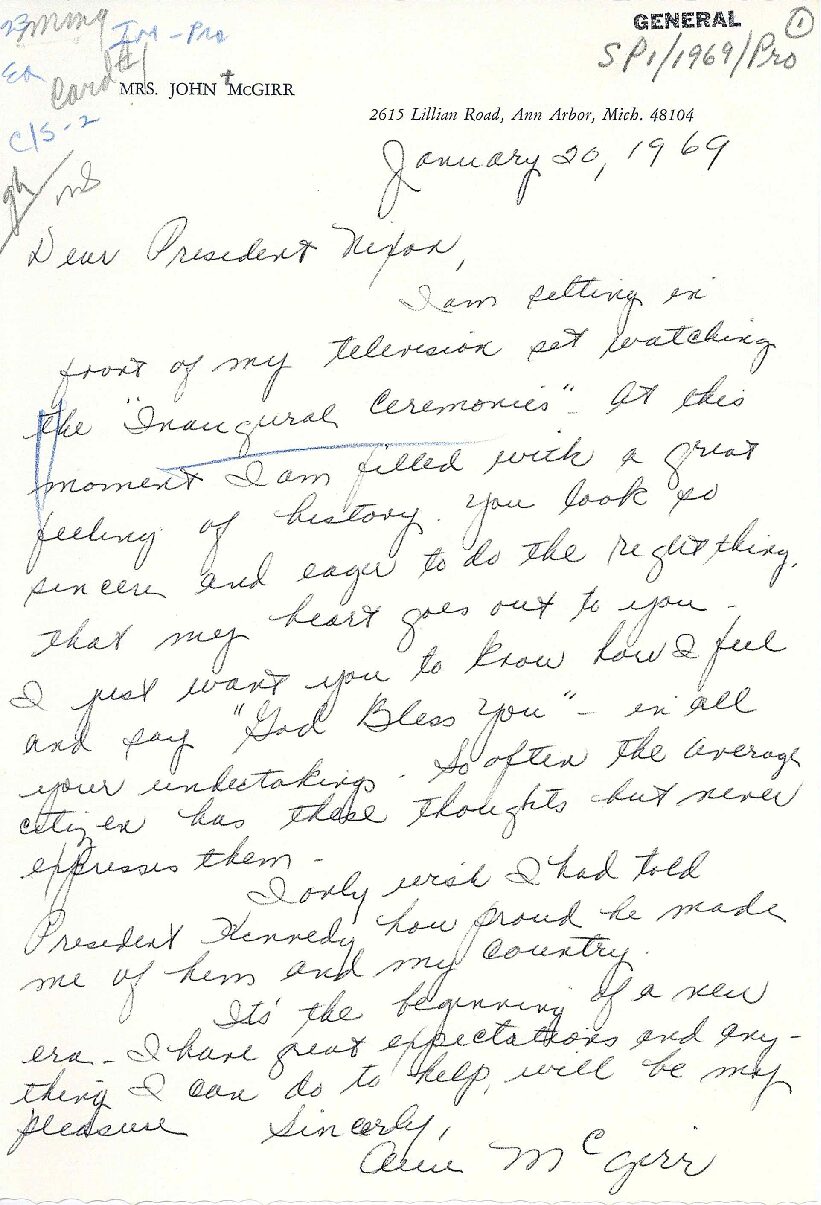 GENERAL
①
SP1/1969/Pro
Card #1
C/S-2
MRS. JOHN McGIRR
2615 Lillian Road, Ann Arbor, Mich. 48104
January 20, 1969
Dear President Nixon,
I am setting in
front of my television set watching
the "Inaugural Ceremonies" - At this
moment I am filled with a great
feeling of history. You look so
sincere and eager to do the right thing,
that my heart goes out to you -
I just want you to know how I feel
and say "God Bless You" - in all
your undertakings. So often the average
citizen has these thoughts but never
expresses them -
I only wish I had told
President Kennedy how proud he made
me of him and my country.
Its' the beginning of a new
era - I have great expectations and any-
thing I can do to help, will be my
pleasure Sincerly,
Ann McGirr